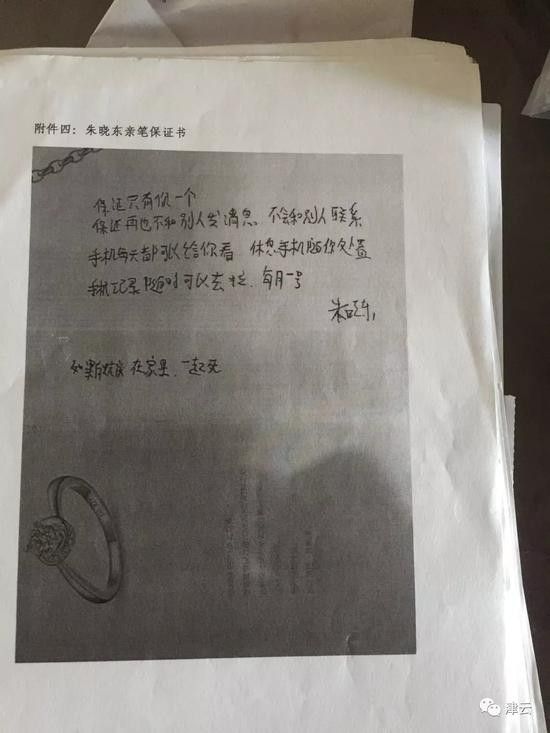 附件四：朱晓东亲笔保证书
保证只有你一个
保证再也不和别人发消息 不会和别人联系
手机每天都可以给你看 休息手机随你处置
手机记录随时可以去拉，每月一号
朱晓东
如果 在家里，一起死
津云